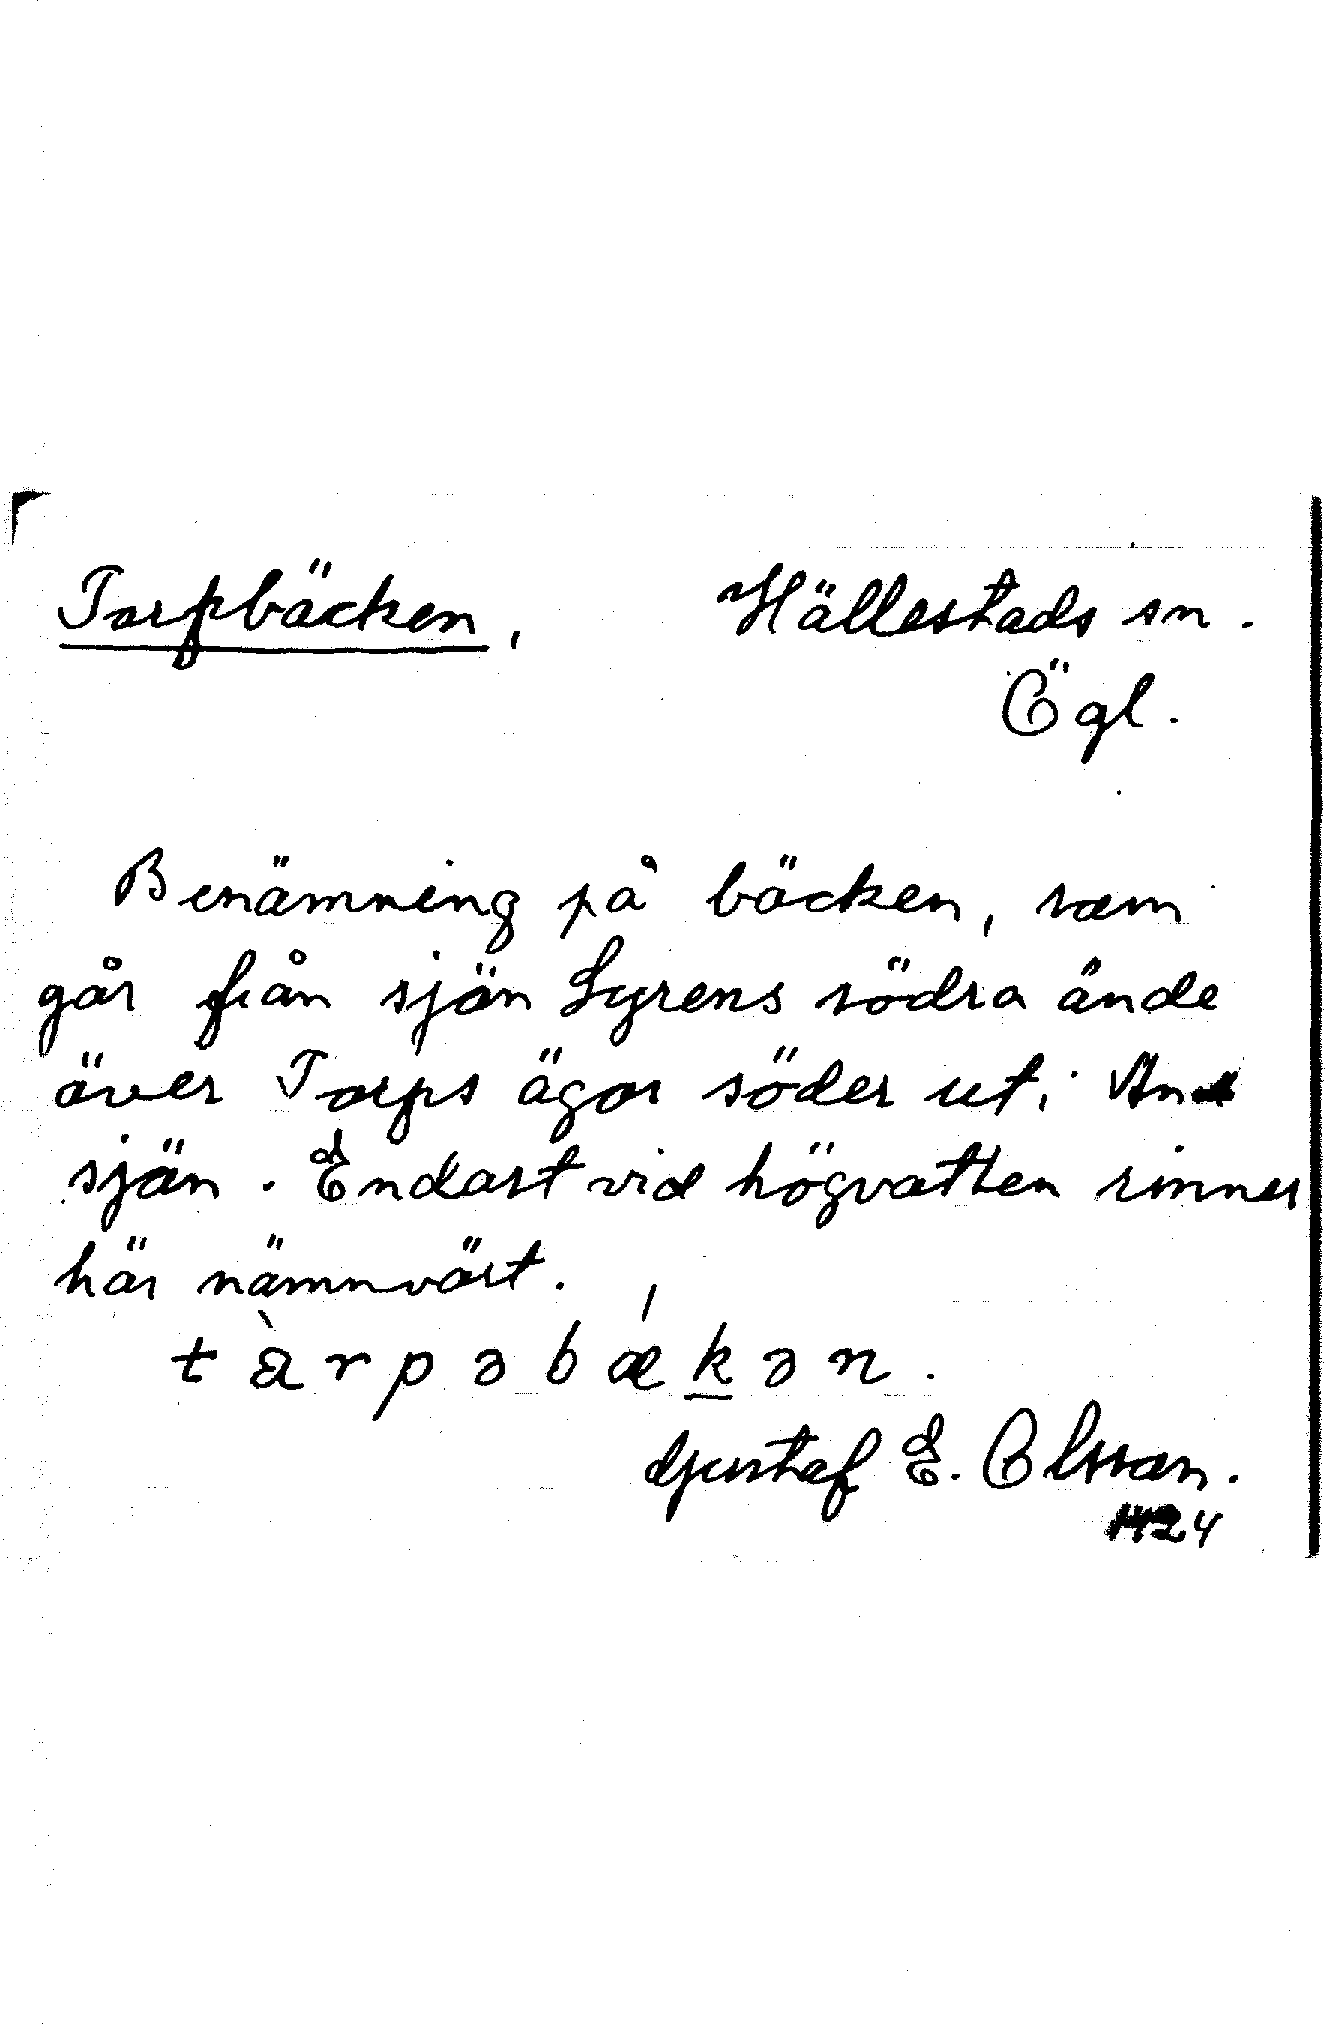 Torpbäcken, Hällestads sn.
Ögl.
Benämning på bäcken, som
går från sjön Lyrens södra ände
över Torps ägor söder ut i An
sjön. Endast vid högvatten rinner
här nämnvärt.
tàrpəbǽkən.
Gustaf E. Olsson.
1924